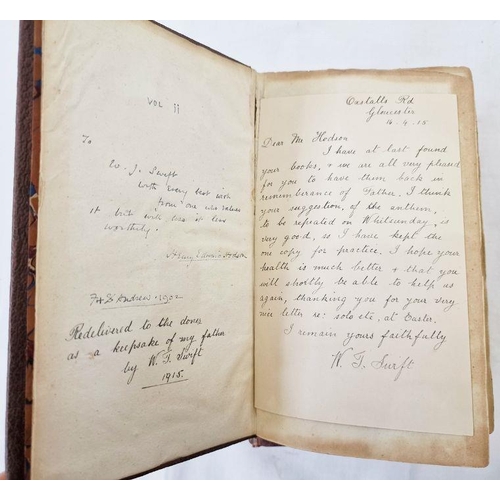 VOL II
To
W. J. Swift
With every best wish
from one who values
it but with less it less
worthily.
Henry Edward Hodson
Xt S. Andrew 1902
Redelivered to the donor
as a keepsake of my father
by W. J. Swift
1915.
Oxstalls Rd
Gloucester
16.4.15
Dear Mr Hodson
I have at last found
your books, & we are all very pleased
for you to have them back in
remembrance of Father. I think
your suggestion, of the anthem,
to be repeated on Whitsunday, is
very good, so I have kept the
one copy for practice. I hope your
health is much better & that you
will shortly be able to help us
again, thanking you for your very
nice letter re: solo etc, at Easter.
I remain yours faithfully
W. J. Swift